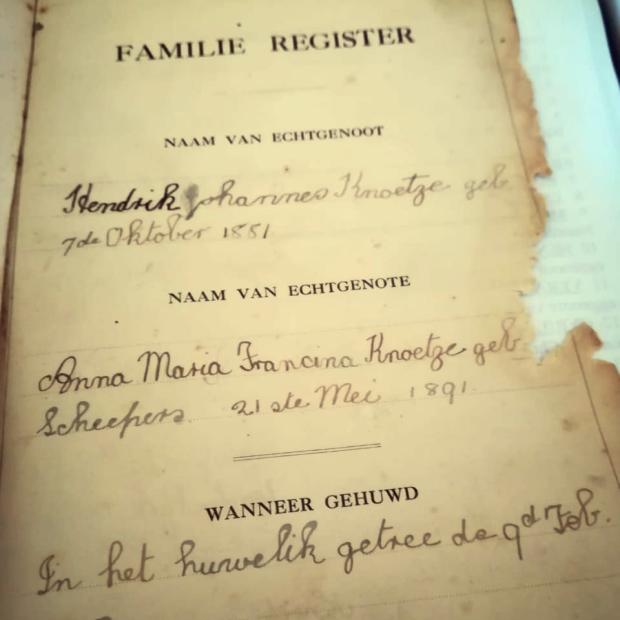 FAMILIE REGISTER
NAAM VAN ECHTGENOOT
Hendrik Johannes Knoetze geb
7de Oktober 1881
NAAM VAN ECHTGENOTE
Anna Maria Francina Knoetze geb
Scheepers 21ste Mei 1891
WANNEER GEHUWD
In het huwelik getree de 9d Feb.